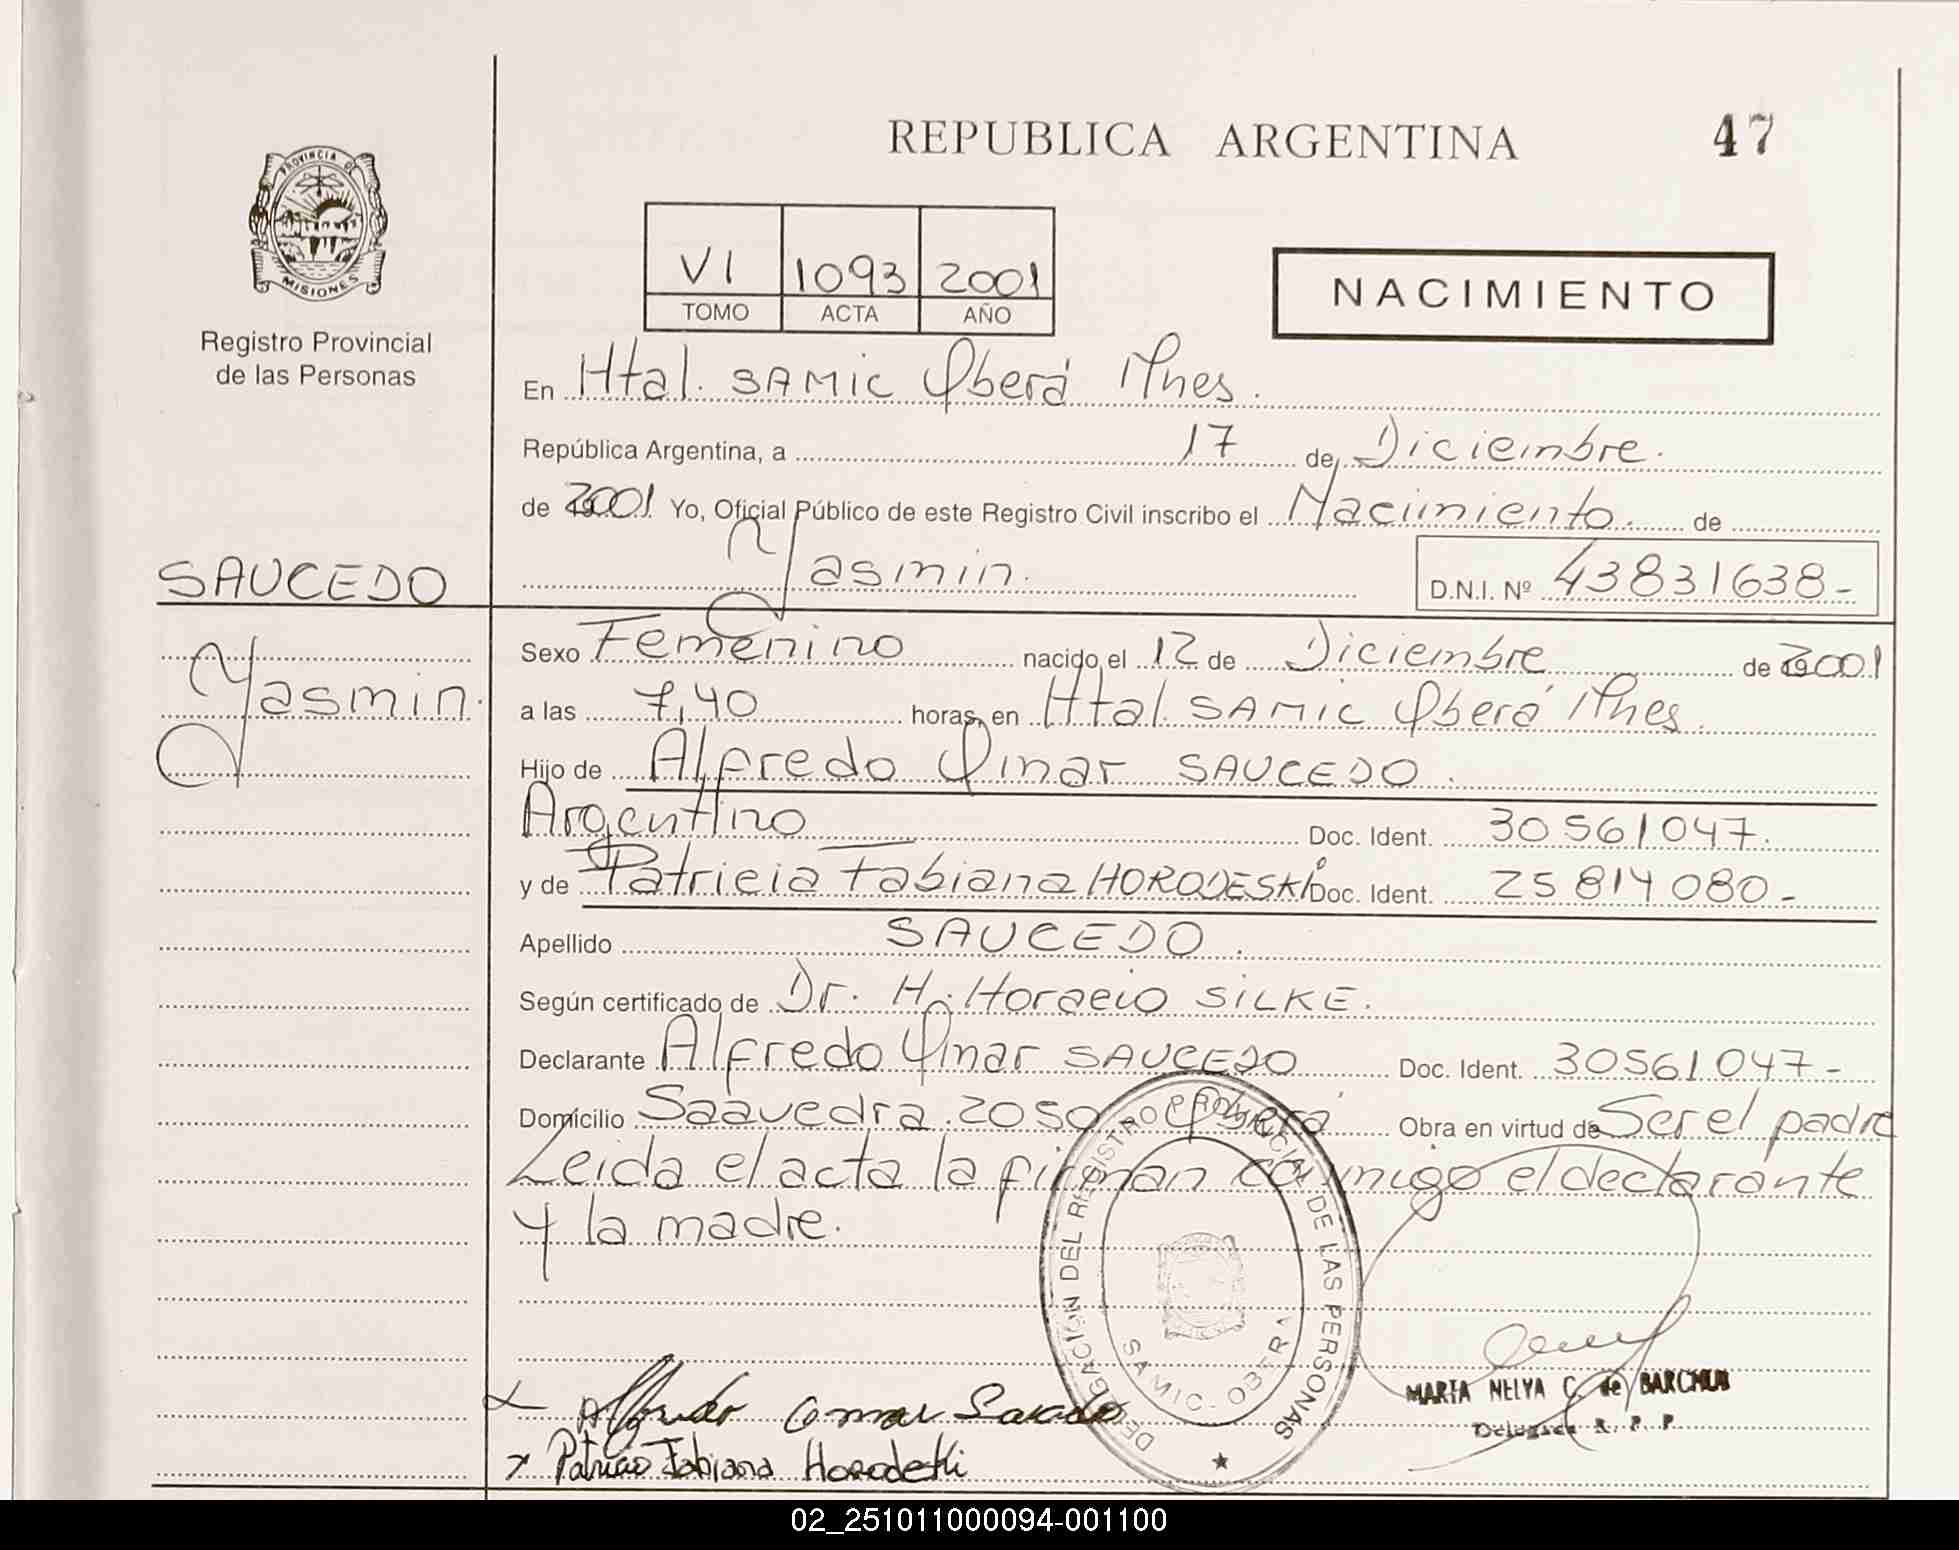 REPUBLICA ARGENTINA
47
PROVINCIA DE MISIONES
Registro Provincial
de las Personas
VI 1093 2001
TOMO ACTA AÑO
NACIMIENTO
En Htal. SAMIC Oberá Mnes.
República Argentina, a 17 de Diciembre.
de 2001 Yo, Oficial Público de este Registro Civil inscribo el Nacimiento. de
Yasmin. D.N.I. Nº 43831638-
SAUCEDO
Yasmin.
Sexo Femenino nacido el 12 de Diciembre de 2001
a las 7,40 horas, en Htal. SAMIC Oberá Mnes.
Hijo de Alfredo Omar SAUCEDO.
Argentino Doc. Ident. 30561047.
y de Patricia Fabiana HORODESKI Doc. Ident. 25814080-
Apellido SAUCEDO.
Según certificado de Dr. H. Horacio SILKE.
Declarante Alfredo Omar SAUCEDO Doc. Ident. 30561047-
Domicilio Saavedra 2050 Oberá Obra en virtud de Ser el padre
Leida el acta la firman conmigo el declarante
y la madre.
DELEGACION DEL REGISTRO PROVINCIAL DE LAS PERSONAS
SAMIC - OBERA
Alfredo Omar Saucedo
Patricia Fabiana Horodeski
MARTA NELYA C. de BARCHUK
Delegada R. P. P.
02_251011000094-001100